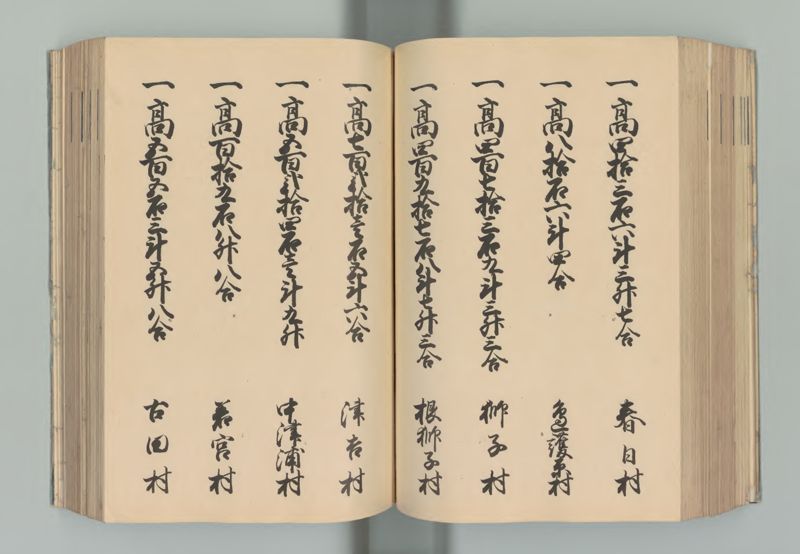 一高四拾三石六斗三升七合 春日村
一高八拾石六斗四合 村
一高四百七拾三石九斗三升三合 獅子村
一高四百九拾七石八斗七升三合 根獅子村
一高七百弐拾壱石五斗六合 津吉村
一高五百弐拾四石壱斗九升 中津浦村
一高百拾九石八升八合 若宮村
一高五百五石三斗五升八合 古田村